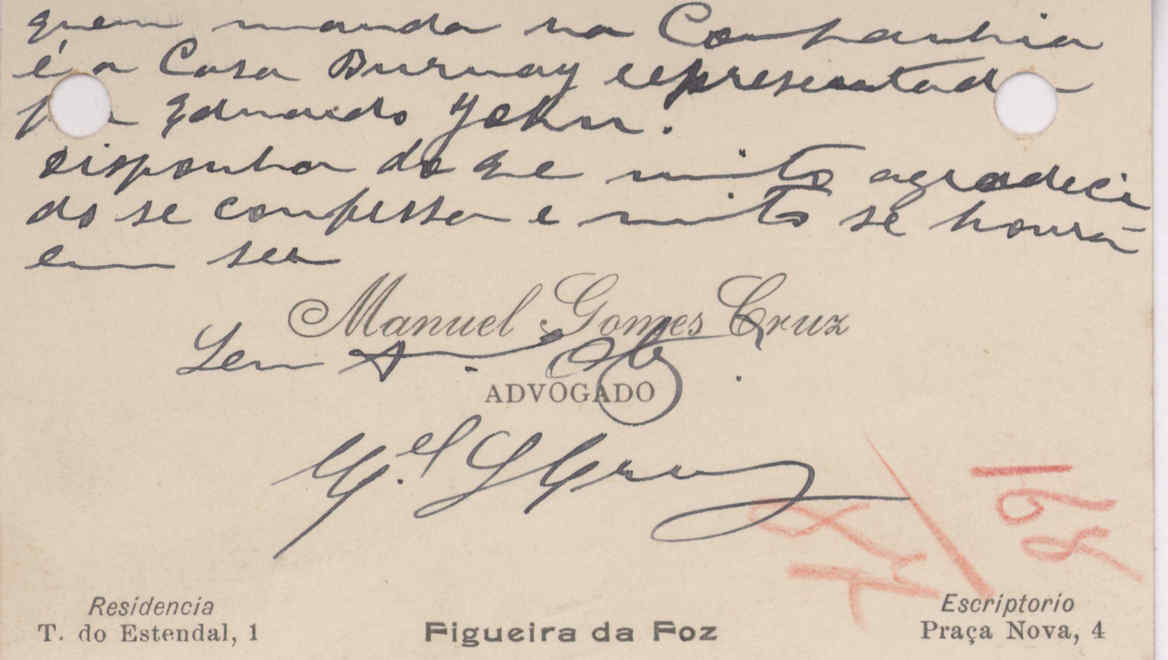 quem manda na Companhia
é a Casa Burnay representada
por Eduardo John.
Disponha do que muito agradeci
do se confessa e muito se honrá
em ser
Manuel Gomes Cruz
ADVOGADO
Mel G Cruz
168
Residencia
T. do Estendal, 1
Figueira da Foz
Escriptorio
Praça Nova, 4